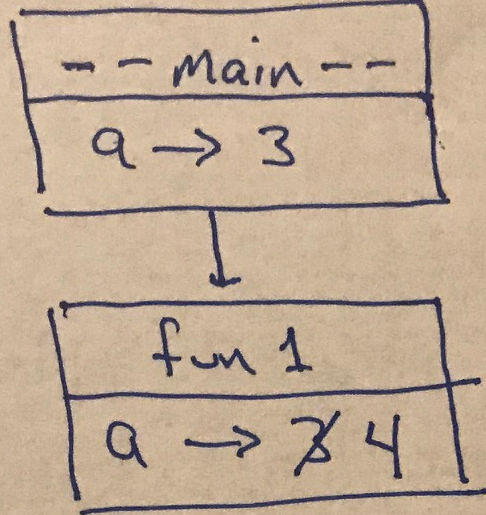 -- Main --
a → 3
fun 1
a → 3 4